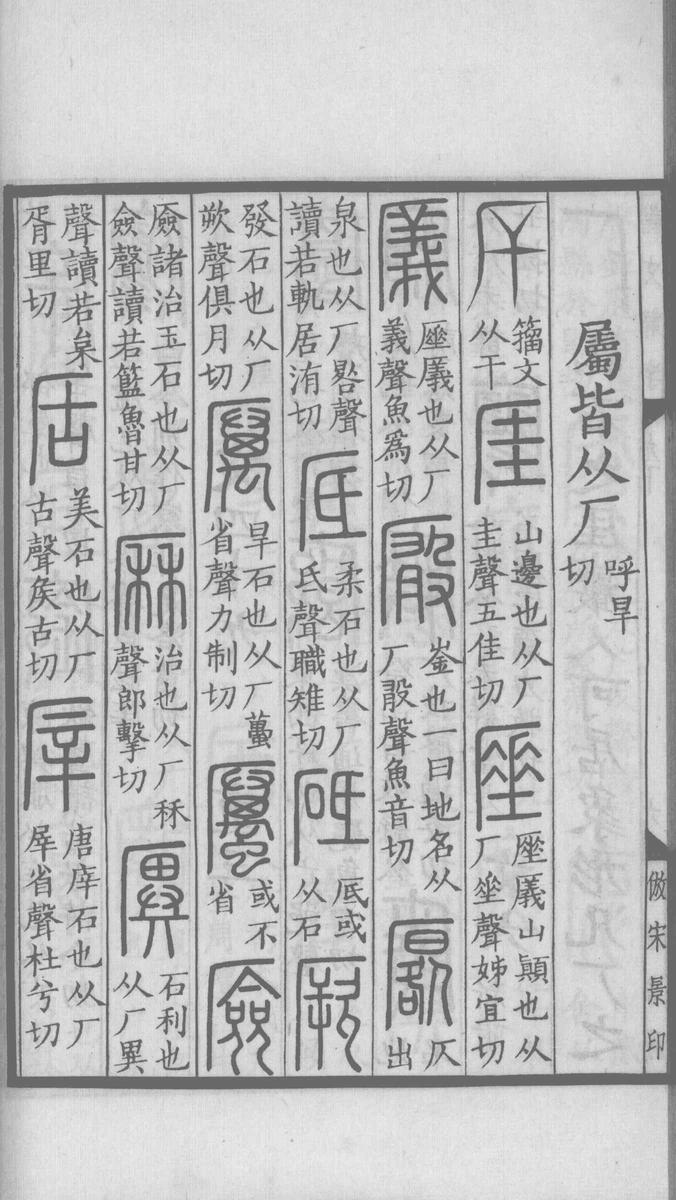 屬皆从厂呼旱切
厈籒文从干厓山邊也从厂圭聲五佳切厜厜㕒山顚也从厂垂聲姊宜切
㕒厜㕒也从厂義聲魚爲切崟也一曰地名从厂敢聲魚音切厬仄出
泉也从厂晷聲讀若軌居洧切厎柔石也从厂氐聲職雉切砥厎或从石厥
發石也从厂欮聲俱月切厲旱石也从厂蠆省聲力制切或不省厱
厱諸治玉石也从厂僉聲讀若籃魯甘切厤治也从厂秝聲郎擊切石利也从厂異
聲讀若枲胥里切㕆美石也从厂古聲矦古切厗唐厗石也从厂屖省聲杜兮切
倣宋景印